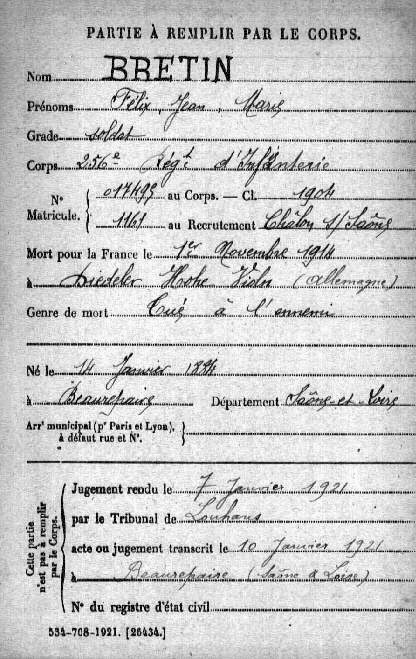 PARTIE À REMPLIR PAR LE CORPS.
Nom BRETIN
Prénoms Félix, Jean, Marie
Grade soldat
Corps 256e Régt d'Infanterie
N° Matricule. { 017495 au Corps. — Cl. 1904
1161 au Recrutement Châlon s/Saône
Mort pour la France le 1er Novembre 1914
à Hohe (Allemagne)
Genre de mort Tué à l'ennemi
Né le 14 Janvier 1884
à Beaurepaire Département Saône-et-Loire
Arrt municipal (pr Paris et Lyon), à défaut rue et N°. }
Cette partie n'est pas à remplir par le Corps.
Jugement rendu le 7 Janvier 1921
par le Tribunal de Louhans
acte ou jugement transcrit le 10 Janvier 1921
à Beaurepaire (Saône & Loire)
N° du registre d'état civil
534-708-1921. [26434.]